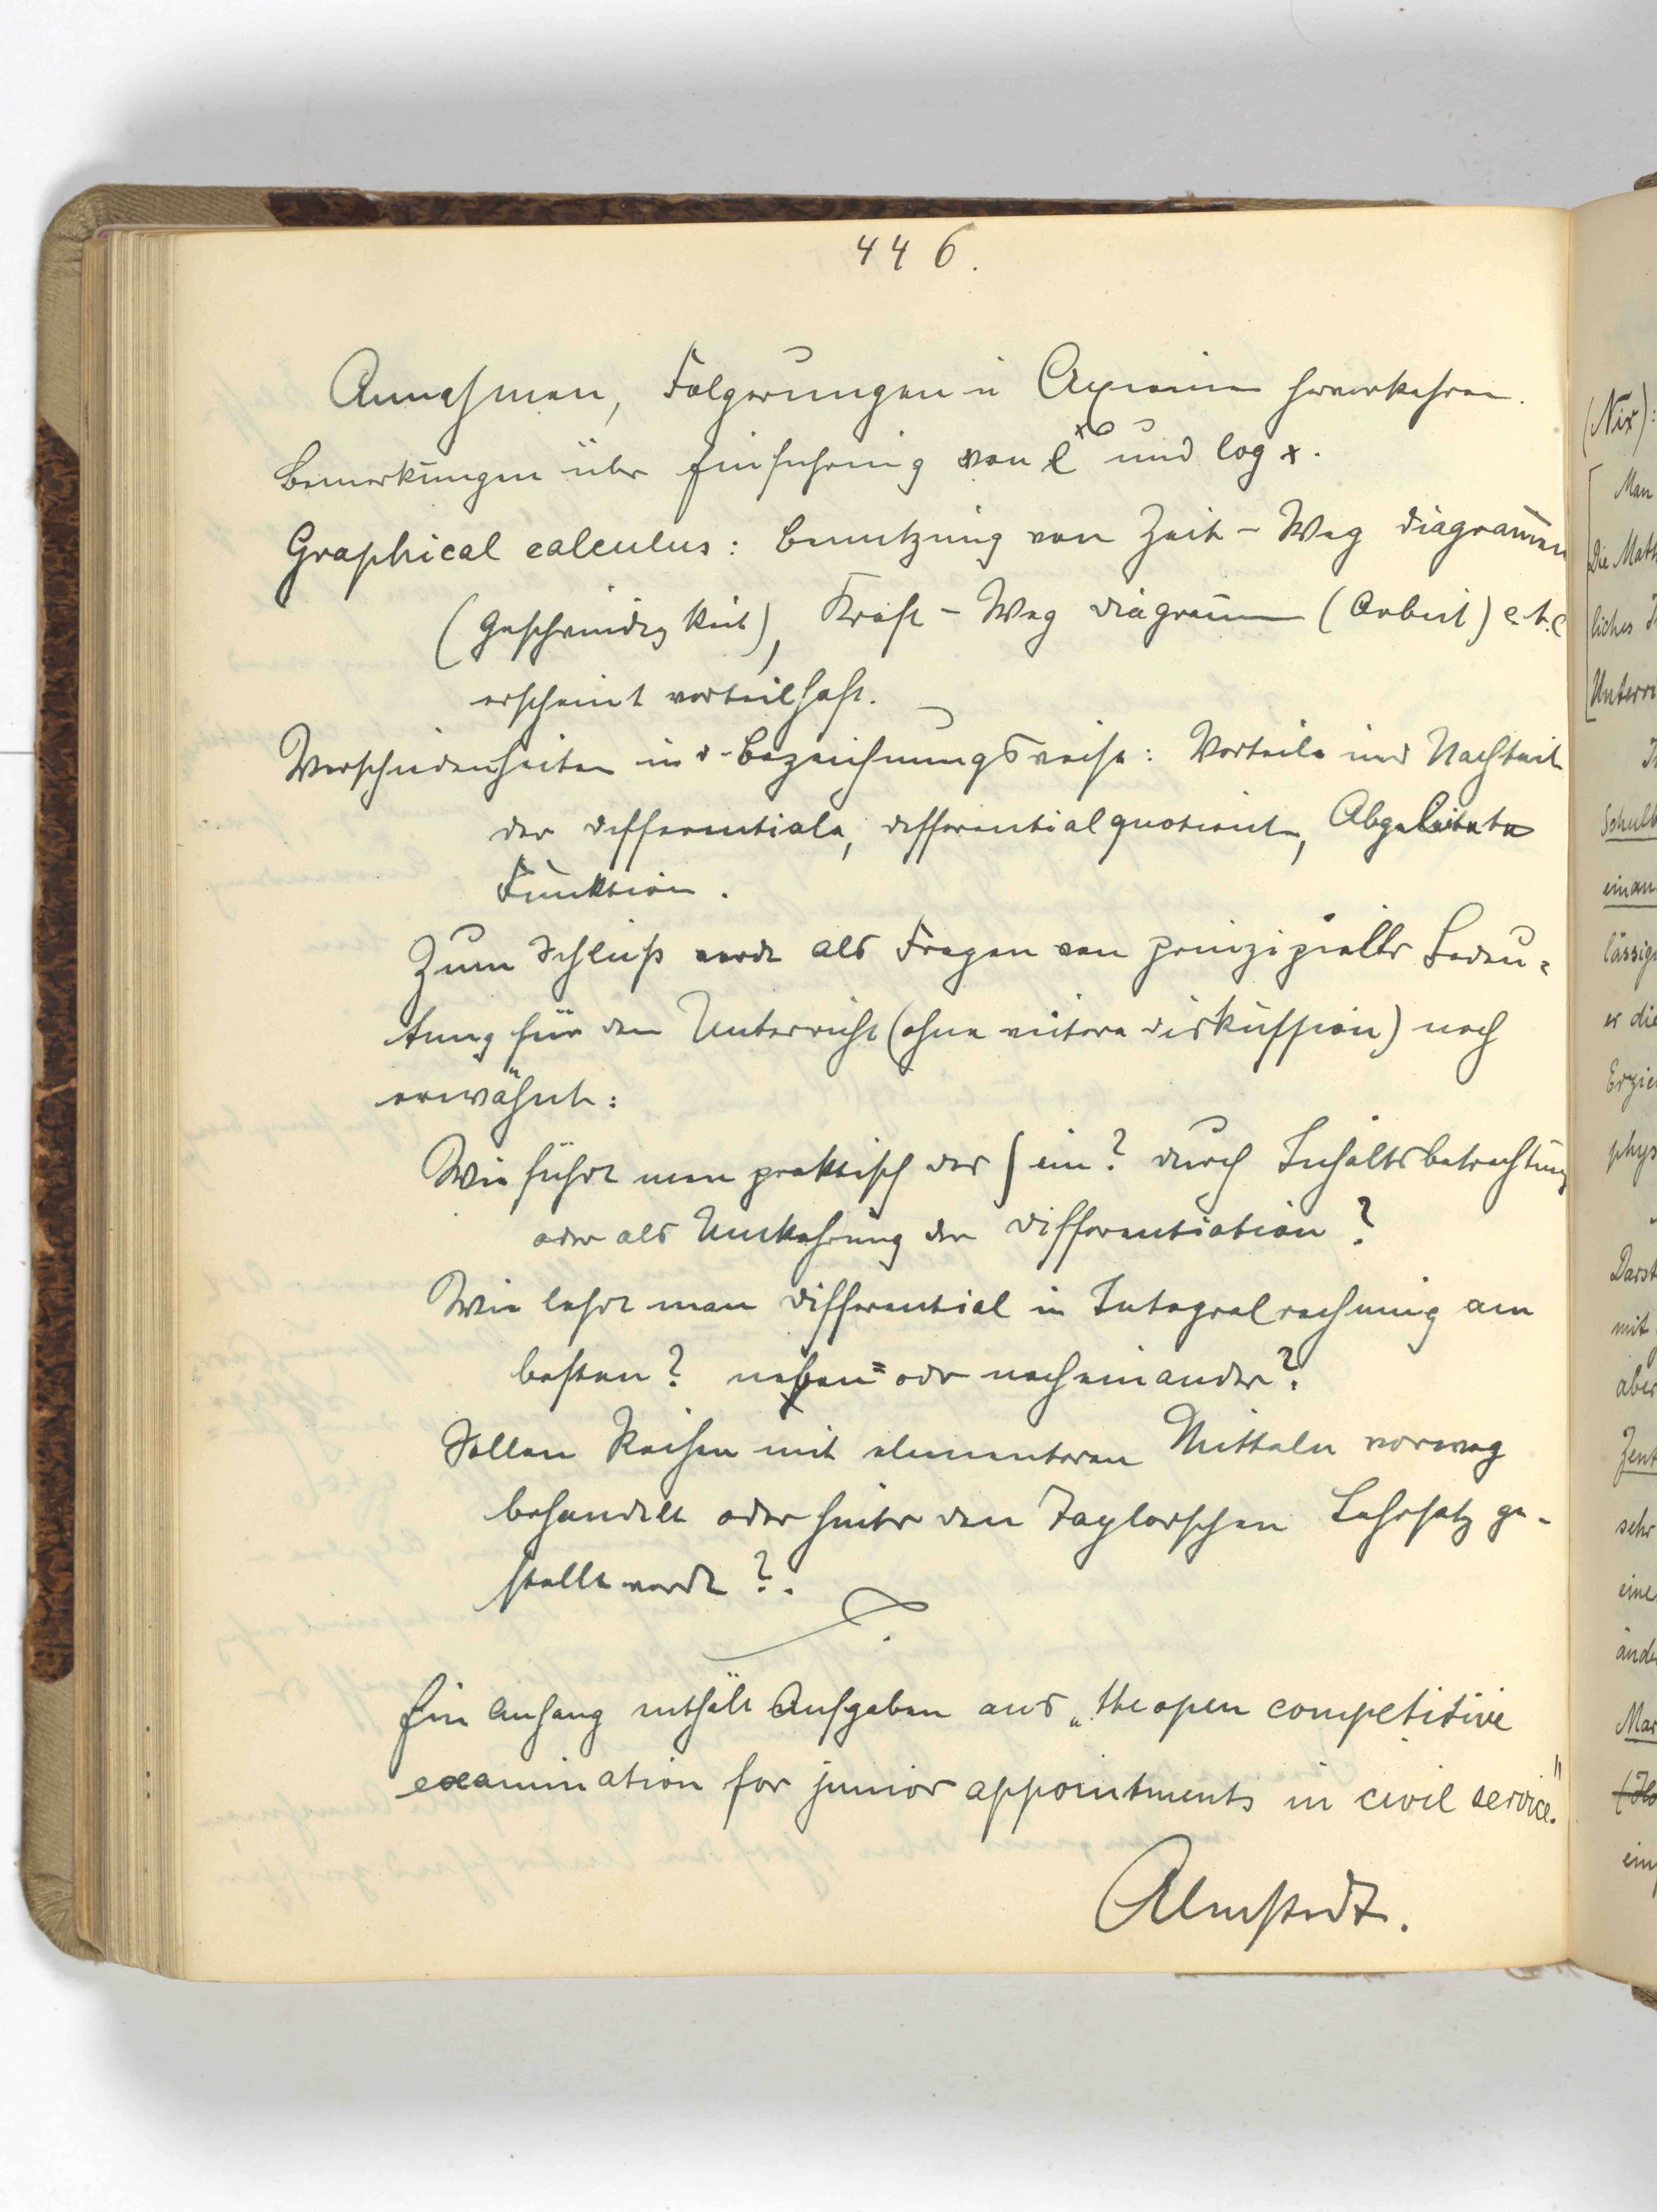 446.
Annahmen, Folgerungen u Axiome hervorkehren.
Bemerkungen über Einführung von e^x und log x.
Graphical calculus: Benutzung von Zeit - Weg diagrammen
(Geschwindigkeit), Kraft - Weg diagramm (Arbeit) e.t.c
erscheint vorteilhaft.
Verschiedenheiten in d. Bezeichnungsweise: Vorteile und Nachteil
der differentiale, differentialquotient, Abgeleitete
Funktion.
Zum Schluß werde als Fragen von prinzipieller Bedeu=
tung für den Unterricht (ohne weitere diskussion) noch
erwähnt:
Wie führt man praktisch das ∫ ein? durch Inhaltsbetrachtung
oder als Umkehrung der differentiation?
Wie lehrt man differential u Integralrechnung am
besten? neben= oder nacheinander?
Sollen Reihen mit elementaren Mitteln vorweg
behandelt oder hinter den Taylorschen Lehrsatz ge-
stellt werde?.
Ein Anhang enthält Aufgaben aus „the open competitive
examination for junior appointments in civil service."
Almstedt.
(Nix):
Man
Die Math
liches
Unterri
Schulb
einan
lässig
er die
Erzie
phys
Darst
mit
aber
Zent
sehr
eine
ände
Mar